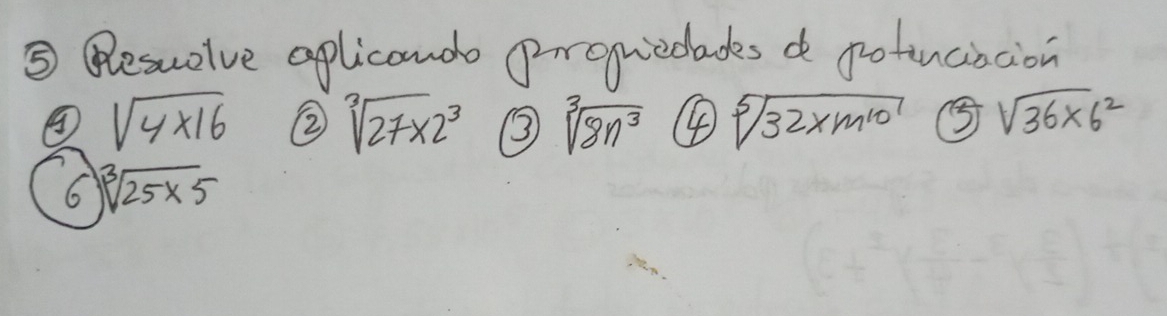 ⑤ Resuelve aplicando propiedades de potenciación
① √4×16 ② ∛27×2³ ③ ∛8n³ ④ ⁵√32×m¹⁰ ⑤ √36×6²
⑥ ∛25×5